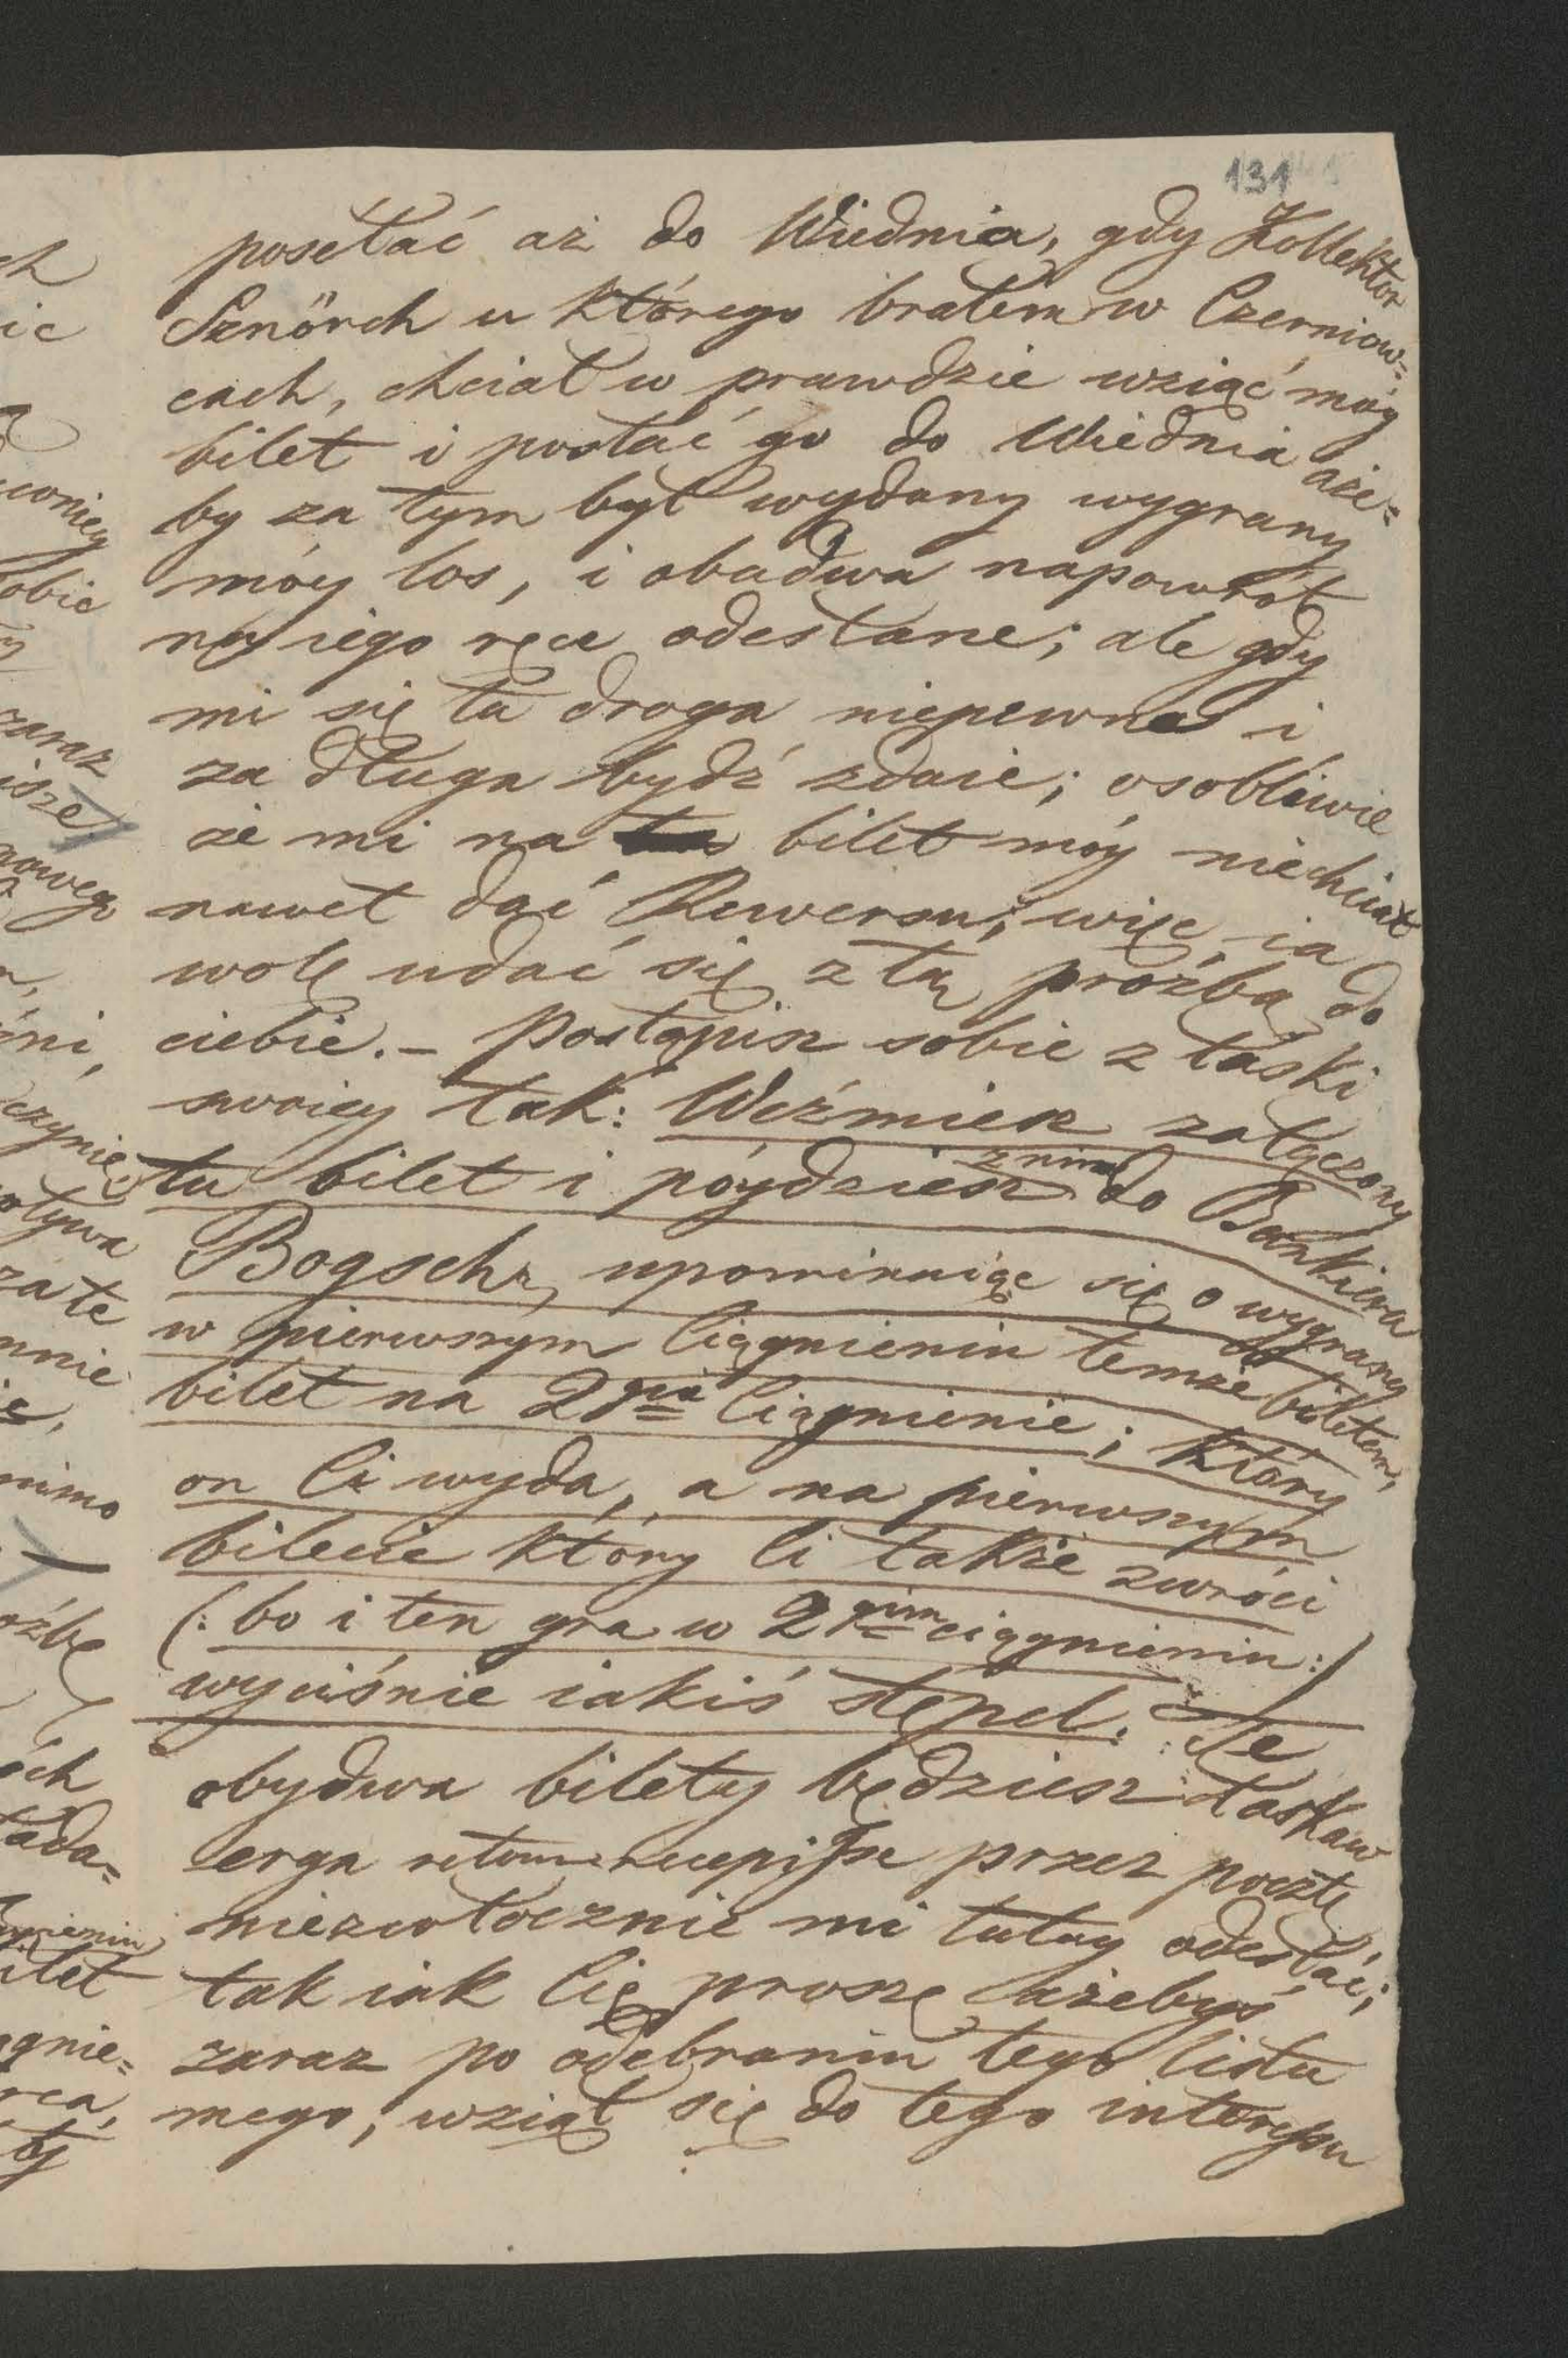 131
posełać aż do Wiednia, gdy Kollektor
Sznörch u którego brałem w Czerniow=
cach, chciał w prawdzie wziąć móy
bilet i posłać go do Wiednia aże=
by za tym był wydany wygrany
móy los, i obadwa napowrót
na iego ręce odesłane; ale gdy
mi się ta droga niepewna i
za długa bydź zdaie; osobliwie
że mi na bilet móy niechciał
nawet dać Rewersu; więc ia
wolę udać się z tą proźbą do
ciebie. – Postąpisz sobie z łaski
swoiey tak: Weźmiesz załączony
tu bilet i póydziesz z nim do Bankiera
Bogscha, upominaiąc się o wygrany
w pierwszym Ciągnieniu temże biletem,
bilet na 2gie Ciągnienie; który
on Ci wyda, a na pierwszym
bilecie który Ci także zwróci
(: bo i ten gra w 2gim ciągnieniu :)
wyciśnie iakiś stępel. Te
obydwa bilety będziesz łaskaw
erga retour recepisse przez pocztę
niezwłocznie mi tutay odesłać;
tak iak Cię proszę ażebyś
zaraz po odebraniu tego listu
mego, wziął się do tego interesu